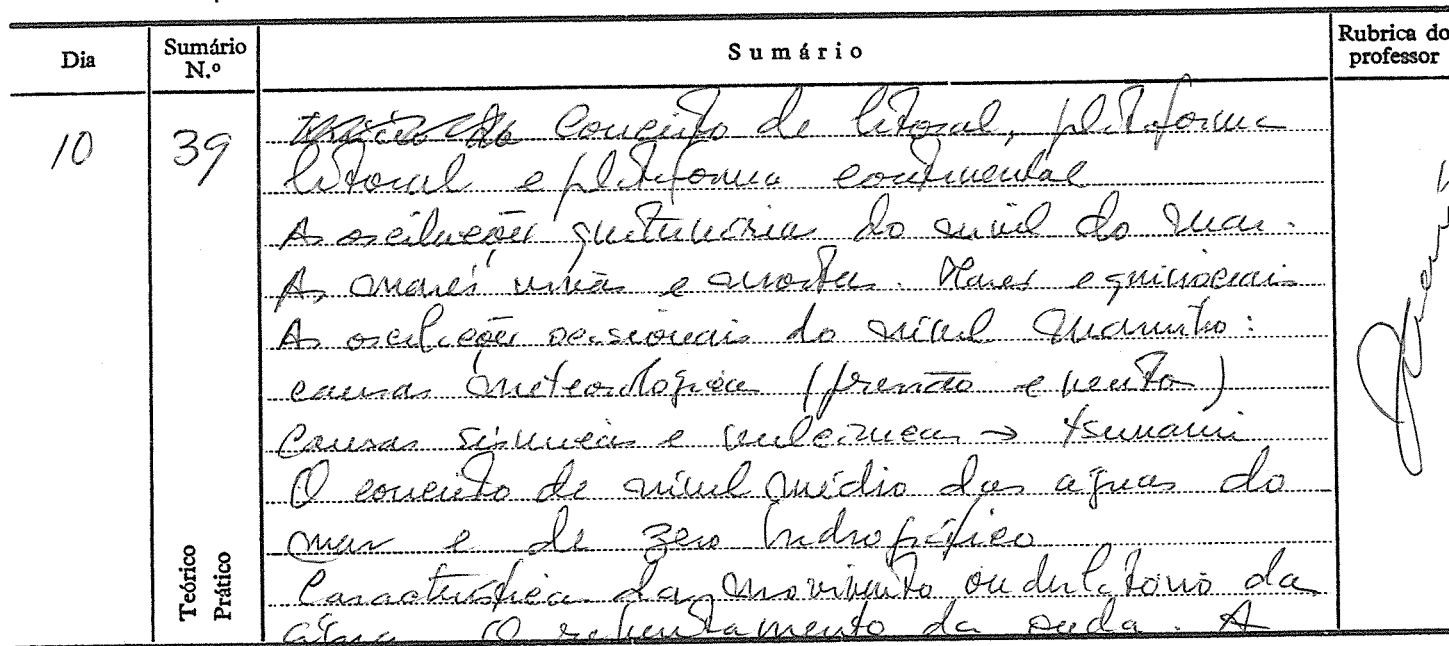 Dia
Sumário
N.º
Sumário
Rubrica do
professor
10
39
Conceito de litoral, plataforma
litoral e plataforma continental
As oscilações quaternárias do nível do mar.
As marés vivas e mortas. Marés equinociais
As oscilações ocasionais do nível marinho:
causas meteorológicas (pressão e vento)
Causas sísmicas e vulcânicas → tsunami
O conceito de nível médio das águas do
mar e de zero hidrográfico
Características do movimento ondulatório da
água O rebentamento da onda. A
Teórico
Prático